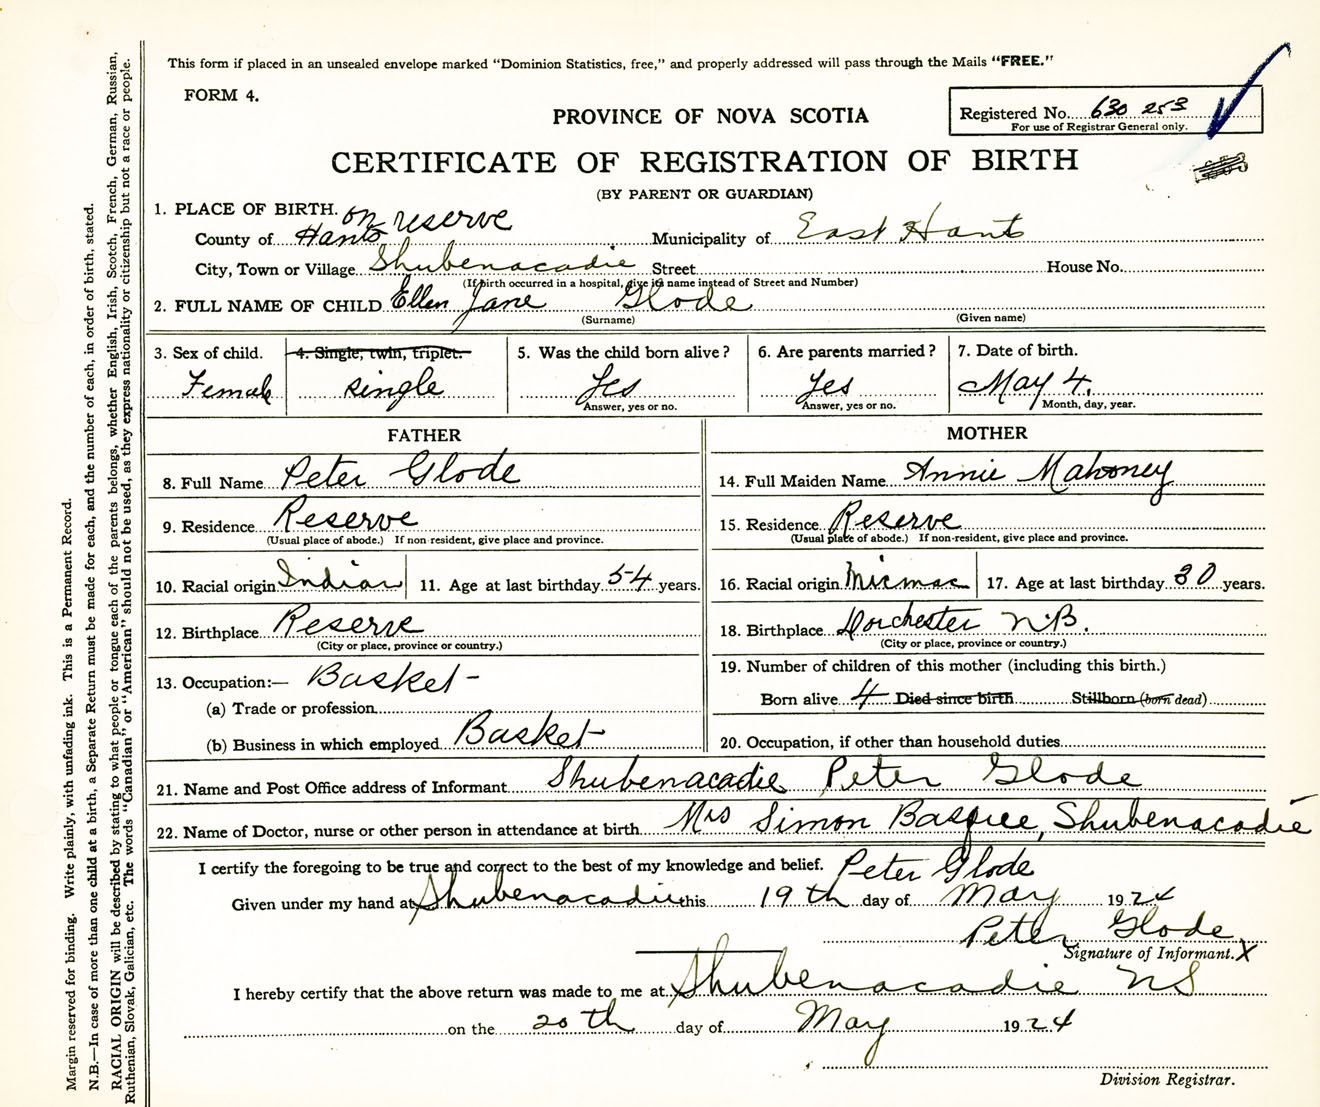 This form if placed in an unsealed envelope marked "Dominion Statistics, free," and properly addressed will pass through the Mails "FREE."
FORM 4.
PROVINCE OF NOVA SCOTIA
Registered No. 630 253
For use of Registrar General only.
CERTIFICATE OF REGISTRATION OF BIRTH
(BY PARENT OR GUARDIAN)
1. PLACE OF BIRTH. on reserve
County of Hants Municipality of East Hants
City, Town or Village Shubenacadie Street House No.
(If birth occurred in a hospital, give its name instead of Street and Number)
2. FULL NAME OF CHILD Ellen Jane Glode
(Surname) (Given name)
3. Sex of child. 4. Single, twin, triplet. 5. Was the child born alive? 6. Are parents married? 7. Date of birth.
Female single Yes Yes May 4.
Answer, yes or no. Answer, yes or no. Month, day, year.
FATHER MOTHER
8. Full Name Peter Glode 14. Full Maiden Name Annie Mahoney
9. Residence Reserve 15. Residence Reserve
(Usual place of abode.) If non-resident, give place and province. (Usual place of abode.) If non-resident, give place and province.
10. Racial origin Indian 11. Age at last birthday 54 years. 16. Racial origin Micmac 17. Age at last birthday 30 years.
12. Birthplace Reserve 18. Birthplace Dorchester N.B.
(City or place, province or country.) (City or place, province or country.)
13. Occupation:— Basket- 19. Number of children of this mother (including this birth.)
(a) Trade or profession Born alive 4 Died since birth Stillborn (born dead)
(b) Business in which employed Basket 20. Occupation, if other than household duties
21. Name and Post Office address of Informant Shubenacadie Peter Glode
22. Name of Doctor, nurse or other person in attendance at birth Mrs Simon Shubenacadie
I certify the foregoing to be true and correct to the best of my knowledge and belief. Peter Glode
Given under my hand at Shubenacadie this 19th day of May 1924
Peter Glode
Signature of Informant. X
I hereby certify that the above return was made to me at Shubenacadie NS
on the 20th day of May 1924
Division Registrar.
Margin reserved for binding. Write plainly, with unfading ink. This is a Permanent Record.
N.B.—In case of more than one child at a birth, a Separate Return must be made for each, and the number of each, in order of birth, stated.
RACIAL ORIGIN will be described by stating to what people or tongue each of the parents belongs, whether English, Irish, Scotch, French, German, Russian,
Ruthenian, Slovak, Galician, etc. The words "Canadian" or "American" should not be used, as they express nationality or citizenship but not a race or people.